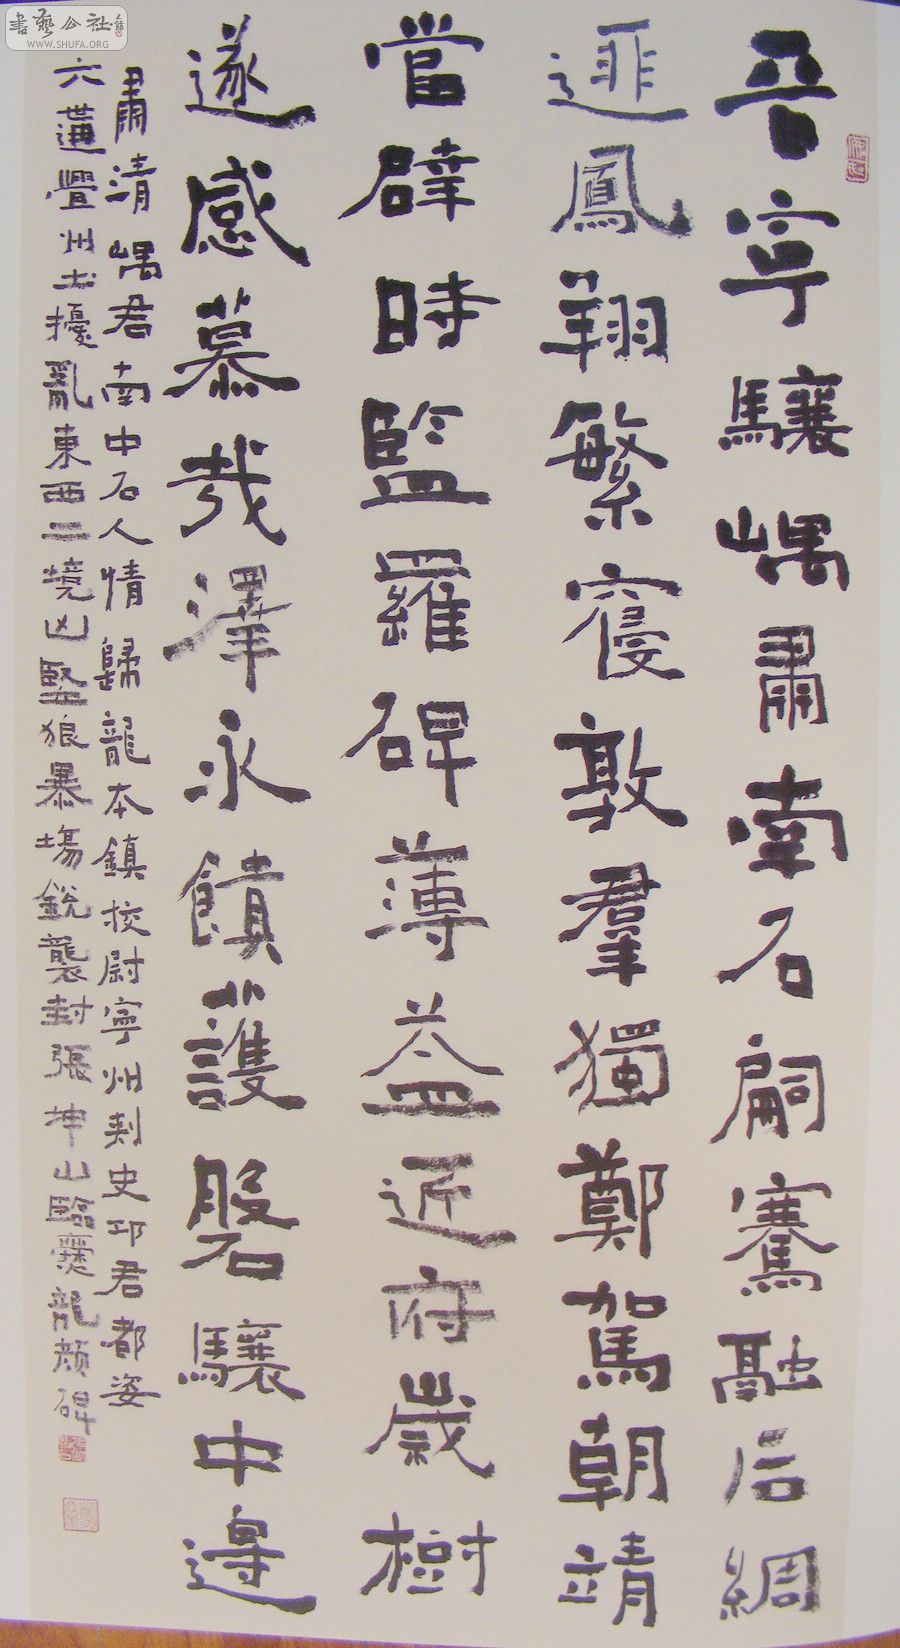 晉寧驤嵎肅南名嗣騫融后綢
遜鳳翔繁寢敦羣獨鄭駕朝靖
當辟時監羅碑薄益近府歲樹
遂感慕哉澤永饋護磐驤中邊
肅清嵎君南中石人情歸龍本鎮校尉寧州刺史邛君都姿
六遘疊州土擾亂東西二境凶豎狼暴場銳襲封張坤山臨爨龍顏碑
書藝公社
WWW.SHUFA.ORG